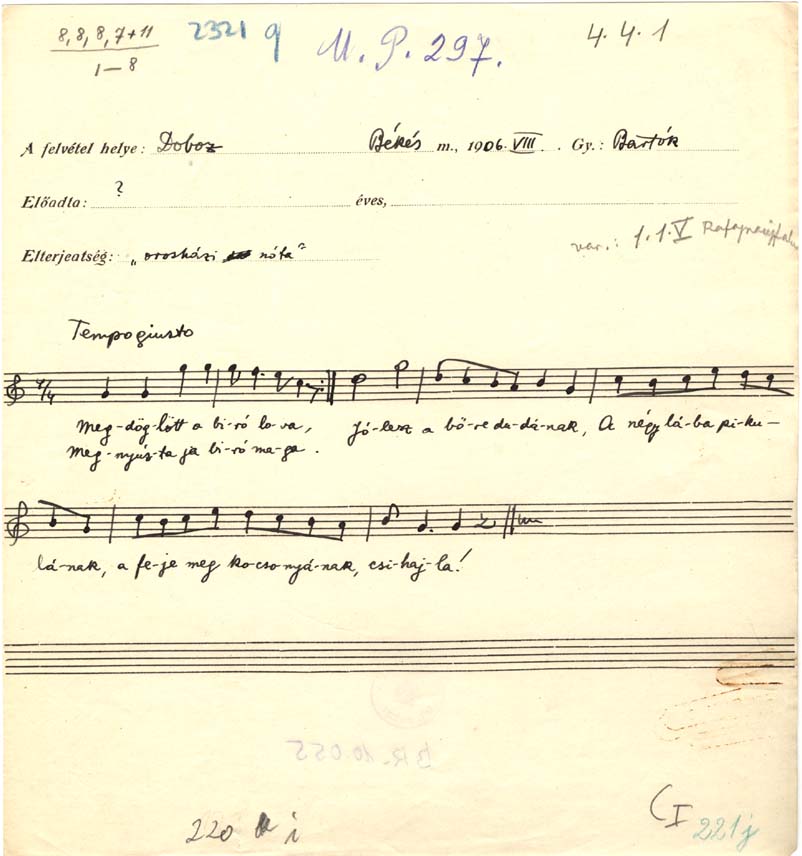 8, 8, 8, 7+11 2321 q M. P. 297. 4. 4. 1
1–8
A felvétel helye: Doboz Békés m., 1906. VIII. Gy.: Bartók
Előadta: ? éves,
var.: 1. 1. V
Elterjeatség: „orosházi nóta"
Tempogiusto
4/4
Meg-dög-lött a bi-ró lo-va, Jó-lesz a bő-re du-dá-nak, A négy lá-ba pi-ku-
Meg-nyuz-ta ja bi-ró ma-ga.
lá-nak, a fe-je meg ko-cso-nyá-nak, csi-haj-la!
BR. 10.055
220 i
C I 221j